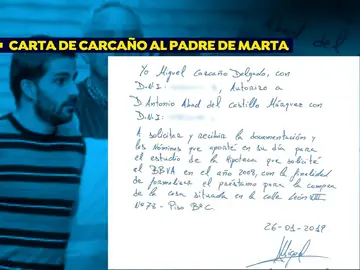 CARTA DE CARCAÑO AL PADRE DE MARTA
Yo Miguel Carcaño Delgado, con
D.N.I: , Autorizo a
D Antonio Abad del Castillo Márquez con
D.N.I:
A solicitar y recibir la documentación y
las Nóminas que aporté en su día para
el estudio de la Hipoteca que solicité
el BBVA en el año 2008, con la finalidad
de formalizar el préstamo para la compra
de la casa situada en la calle León XIII
Nº78 - Piso BºC.
26-01-2019
Miguel